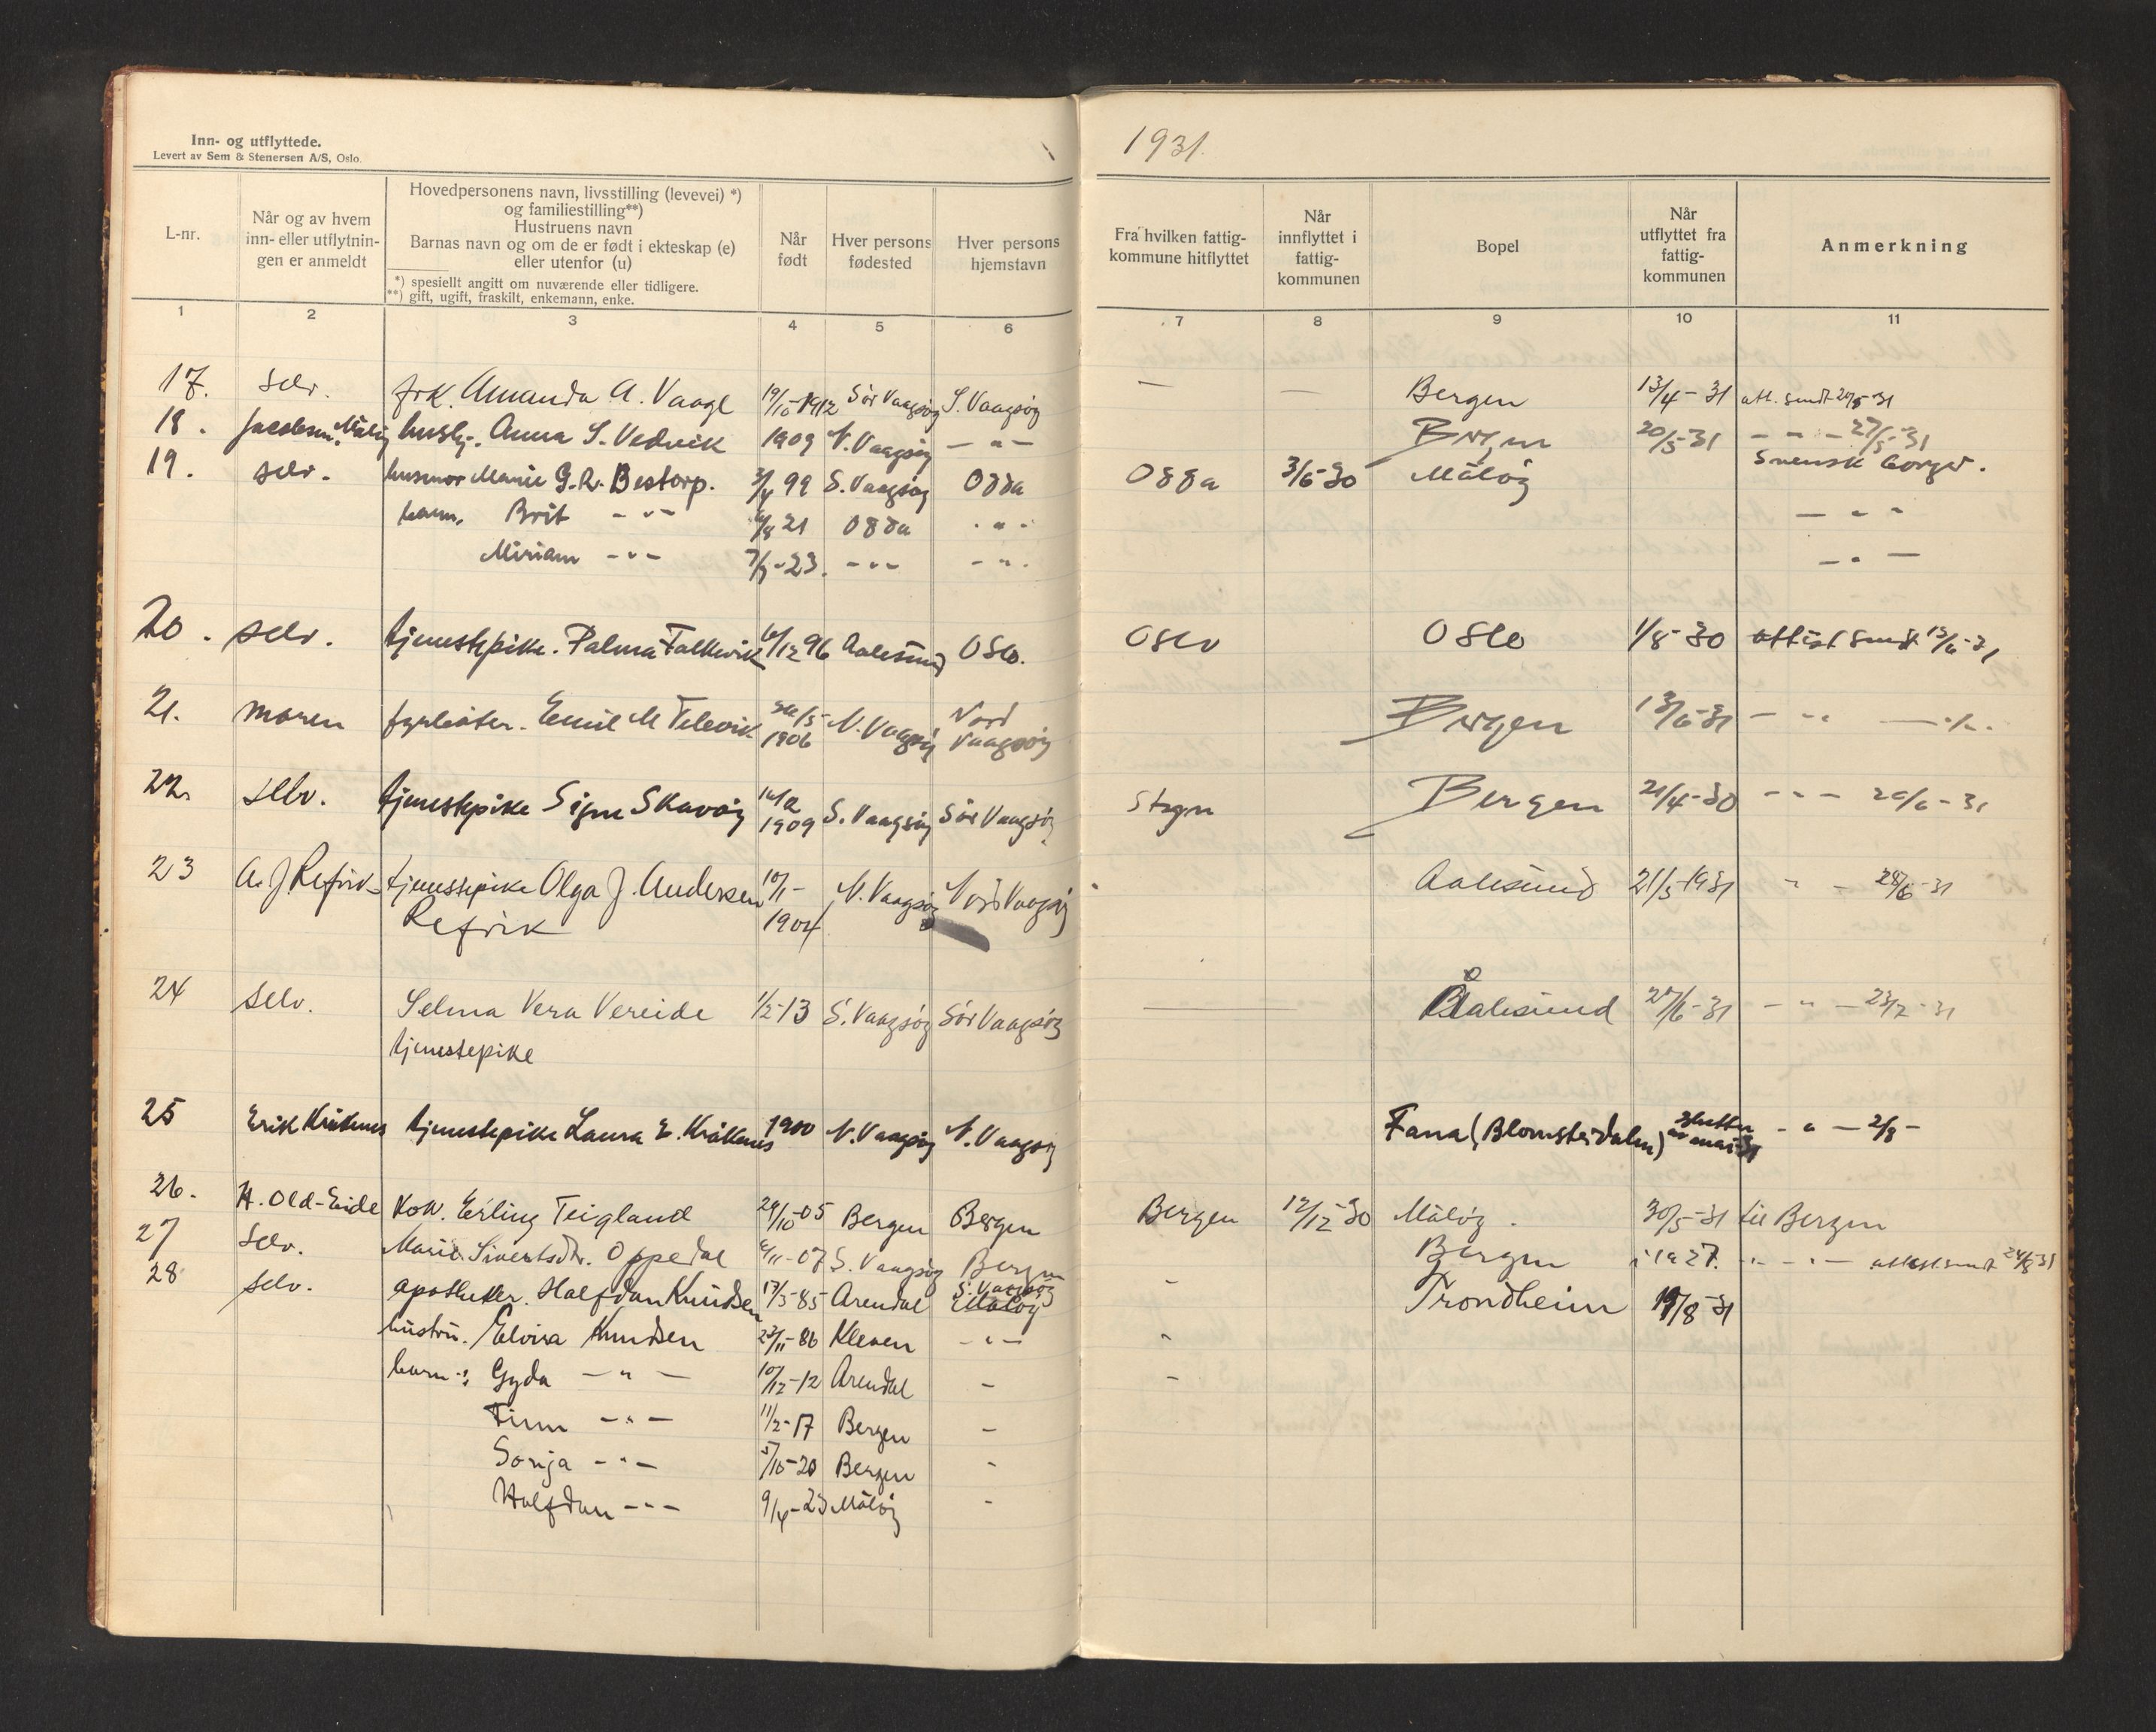 Inn- og utflyttede.
Levert av Sem & Stenersen A/S, Oslo.
1931.
L-nr.
Når og av hvem
inn- eller utflytnin-
gen er anmeldt
Hovedpersonens navn, livsstilling (levevei) *)
og familiestilling**)
Hustruens navn
Barnas navn og om de er født i ekteskap (e)
eller utenfor (u)
*) spesiellt angitt om nuværende eller tidligere.
**) gift, ugift, fraskilt, enkemann, enke.
Når
født
Hver persons
fødested
Hver persons
hjemstavn
Fra hvilken fattig-
kommune hitflyttet
Når
innflyttet i
fattig-
kommunen
Bopel
Når
utflyttet fra
fattig-
kommunen
Anmerkning
1 2 3 4 5 6 7 8 9 10 11
17. selv. frk. Amanda A. Vaage 19/10-1912 Sör Vaagsöy S. Vaagsöy — — Bergen 13/4-31 att. sendt 20/5-31
18. Jacobsen, Målöy Anna S. Vedvik 1909 N. Vaagsöy — " — Bergen 20/5-31 — " — 27/5-31
19. selv. husmor Marie G. R. Bestorp. 99 S. Vaagsöy Odda Odda 3/6-30 Målöy Svensk borger.
barn. Brit — " — 21 Odda " — " "
Miriam — " — 23. — " — — " — — " —
20. selv. tjenestepike. Palma Falkevik 6/12 96 Aalesund Oslo. Oslo Oslo 1/8-30 attest sendt 13/6-31
21. moren Emil M Televik 26/5 1906 N. Vaagsöy Nord Vaagsöy Bergen 13/6-31 — " —
22. selv. tjenestepike Signe Skavöy 1909 S. Vaagsöy Sör Vaagsöy Stryn Bergen 21/4-30 — " — 20/6-31
23 A. J. Refvik tjenestepike Olga J. Andersen 10/11- N. Vaagsöy Nord Vaagsöy Aalesund 21/5-1931 " — 24/6-31
Refvik 1904
24 selv. Selma Vera Vereide 1/2-13 S. Vaagsöy Sör Vaagsöy — Aalesund 27/6-31 — " —
tjenestepike
25 Erik Kråkenes tjenestepike Laura E. Kråkenes 1900 N. Vaagsöy N. Vaagsöy Fana (Blomsterdalen) slutten av mai-31 — " — 2/8-
26. H. Old-Eide Erling Teigland 29/10-05 Bergen Bergen Bergen 12/12-30 Målöy. 30/5-31 til Bergen
27 selv. Marie Sivertsdtr. Oppedal 6/11-07 S. Vaagsöy Bergen Bergen i 1927. — " — attest sendt 24/8-31
28 selv. apotheker. Halfdan Knudsen 17/5-85 Arendal S. Vaagsöy Målöy - Trondheim 19/8-31
hustru. Elvira Knudsen 23/11-86 Kleven — " — -
barn: Gyda — " — 10/12-12 Arendal - -
Finn — " — 11/2-17 Bergen -
Sonja — " — 5/10-20 Bergen -
Halfdan — " — 9/4-23 Målöy -